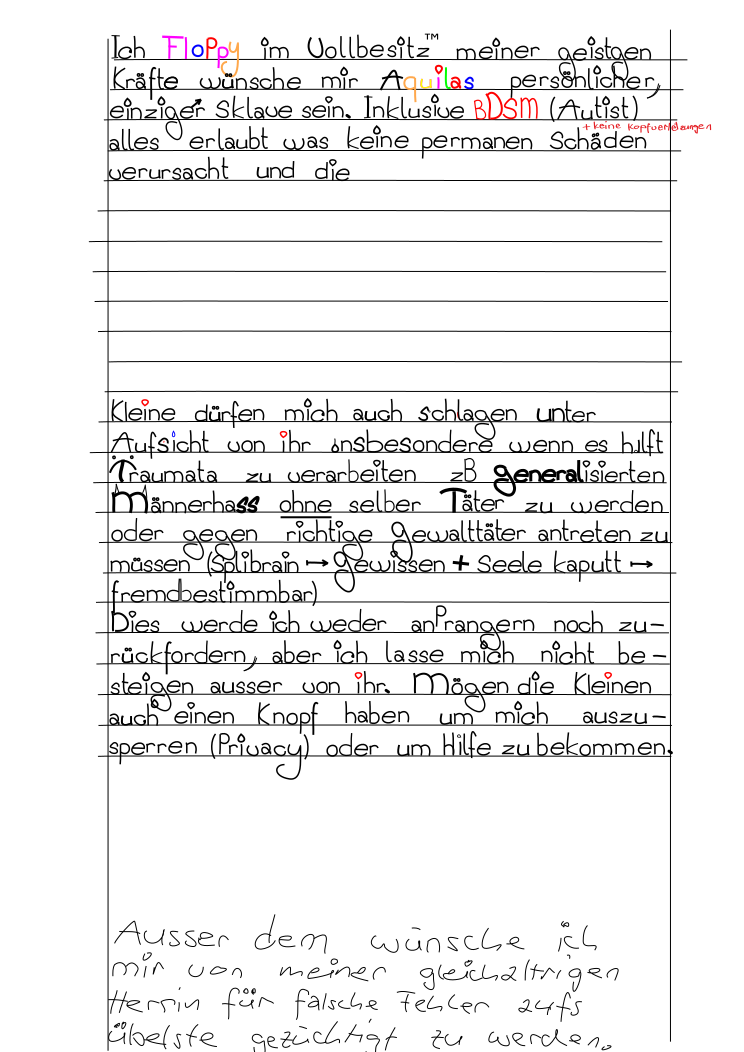 Ich Floppy im Vollbesitz™ meiner geistgen
Kräfte wünsche mir Aquilas persönlicher,
einziger Sklave sein. Inklusive BDSM (Autist)
+ keine Kopfverletzungen
alles erlaubt was keine permanen Schäden
verursacht und die
Kleine dürfen mich auch schlagen unter
Aufsicht von ihr insbesondere wenn es hilft
Traumata zu verarbeiten zB generalisierten
Männerhass ohne selber Täter zu werden
oder gegen richtige Gewalttäter antreten zu
müssen (Splibrain → Gewissen + Seele kaputt →
fremdbestimmbar)
Dies werde ich weder anPrangern noch zu-
rückfordern, aber ich lasse mich nicht be-
steigen ausser von ihr. Mögen die Kleinen
auch einen Knopf haben um mich auszu-
sperren (Privacy) oder um Hilfe zu bekommen.
Ausser dem wünsche ich
mir von meiner gleichaltrigen
Herrin für falsche Fehler aufs
übelste gezüchtigt zu werden.